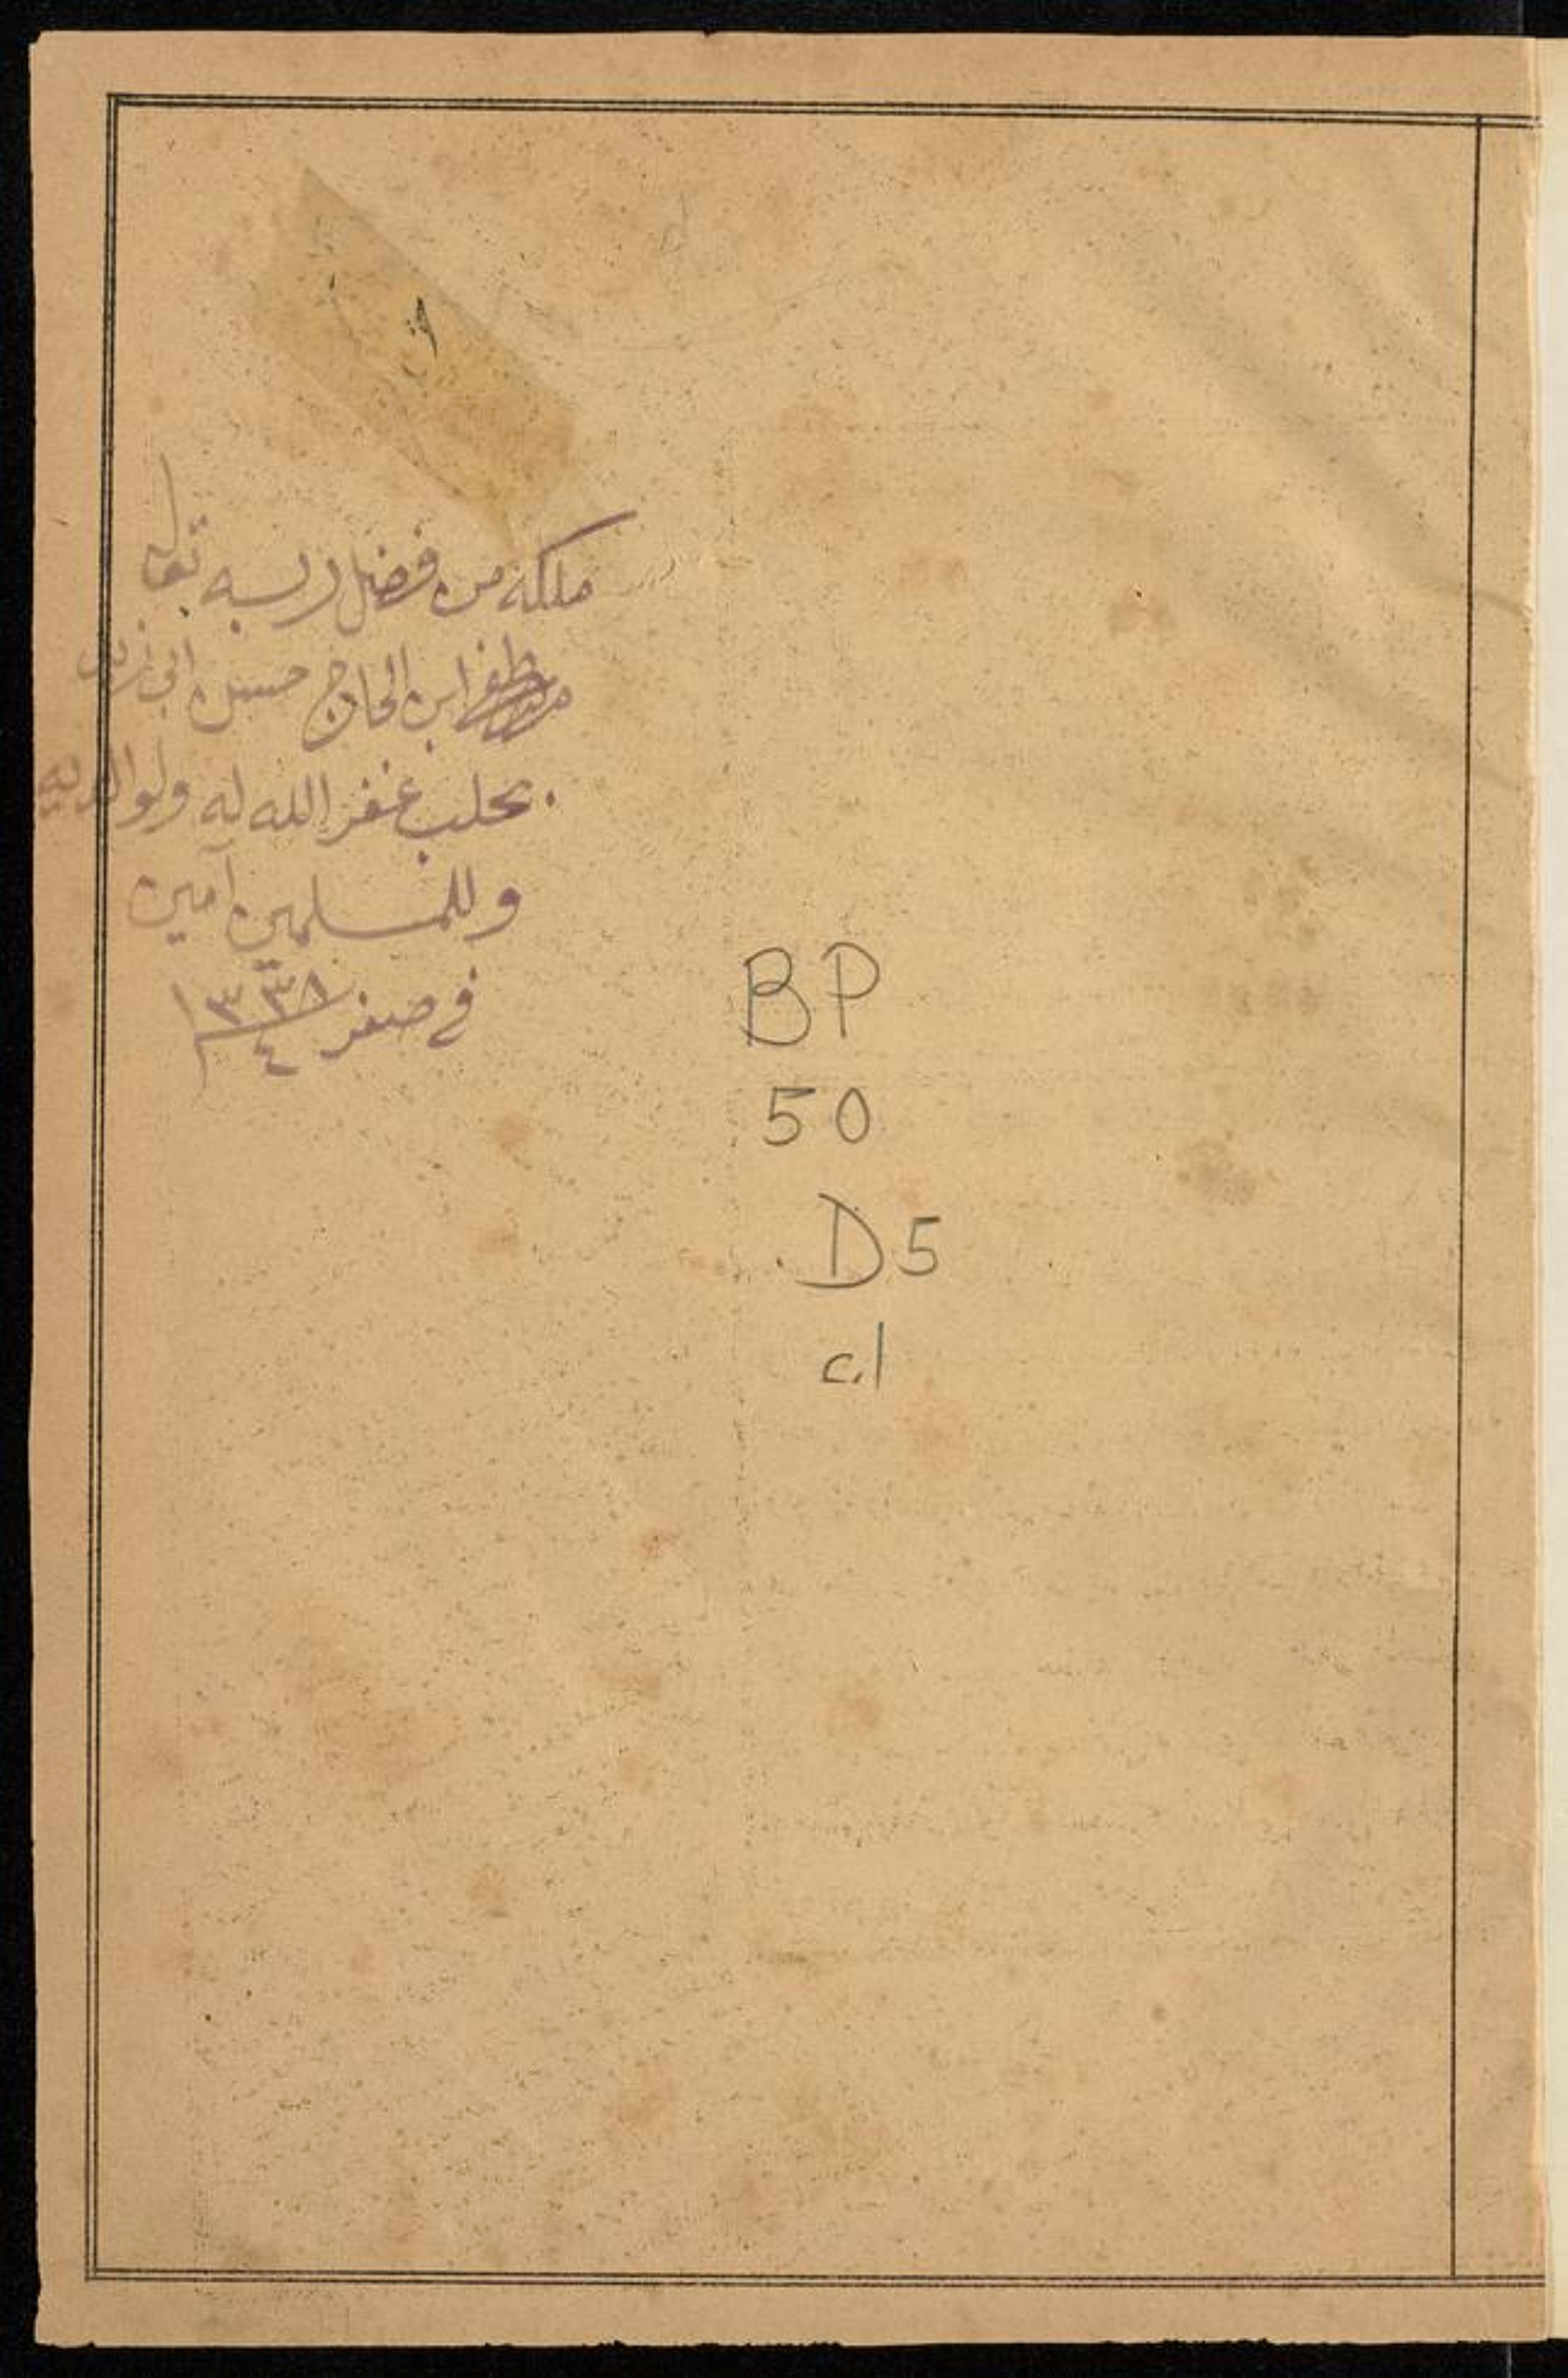 ملكه من فضل ربه تعالى
ابن الحاج حسين ابي
بحلب غفر الله له ولوالديه
وللمسلمين آمين
في صفر ١٣٣٨
٤
BP
50
D5
c.1